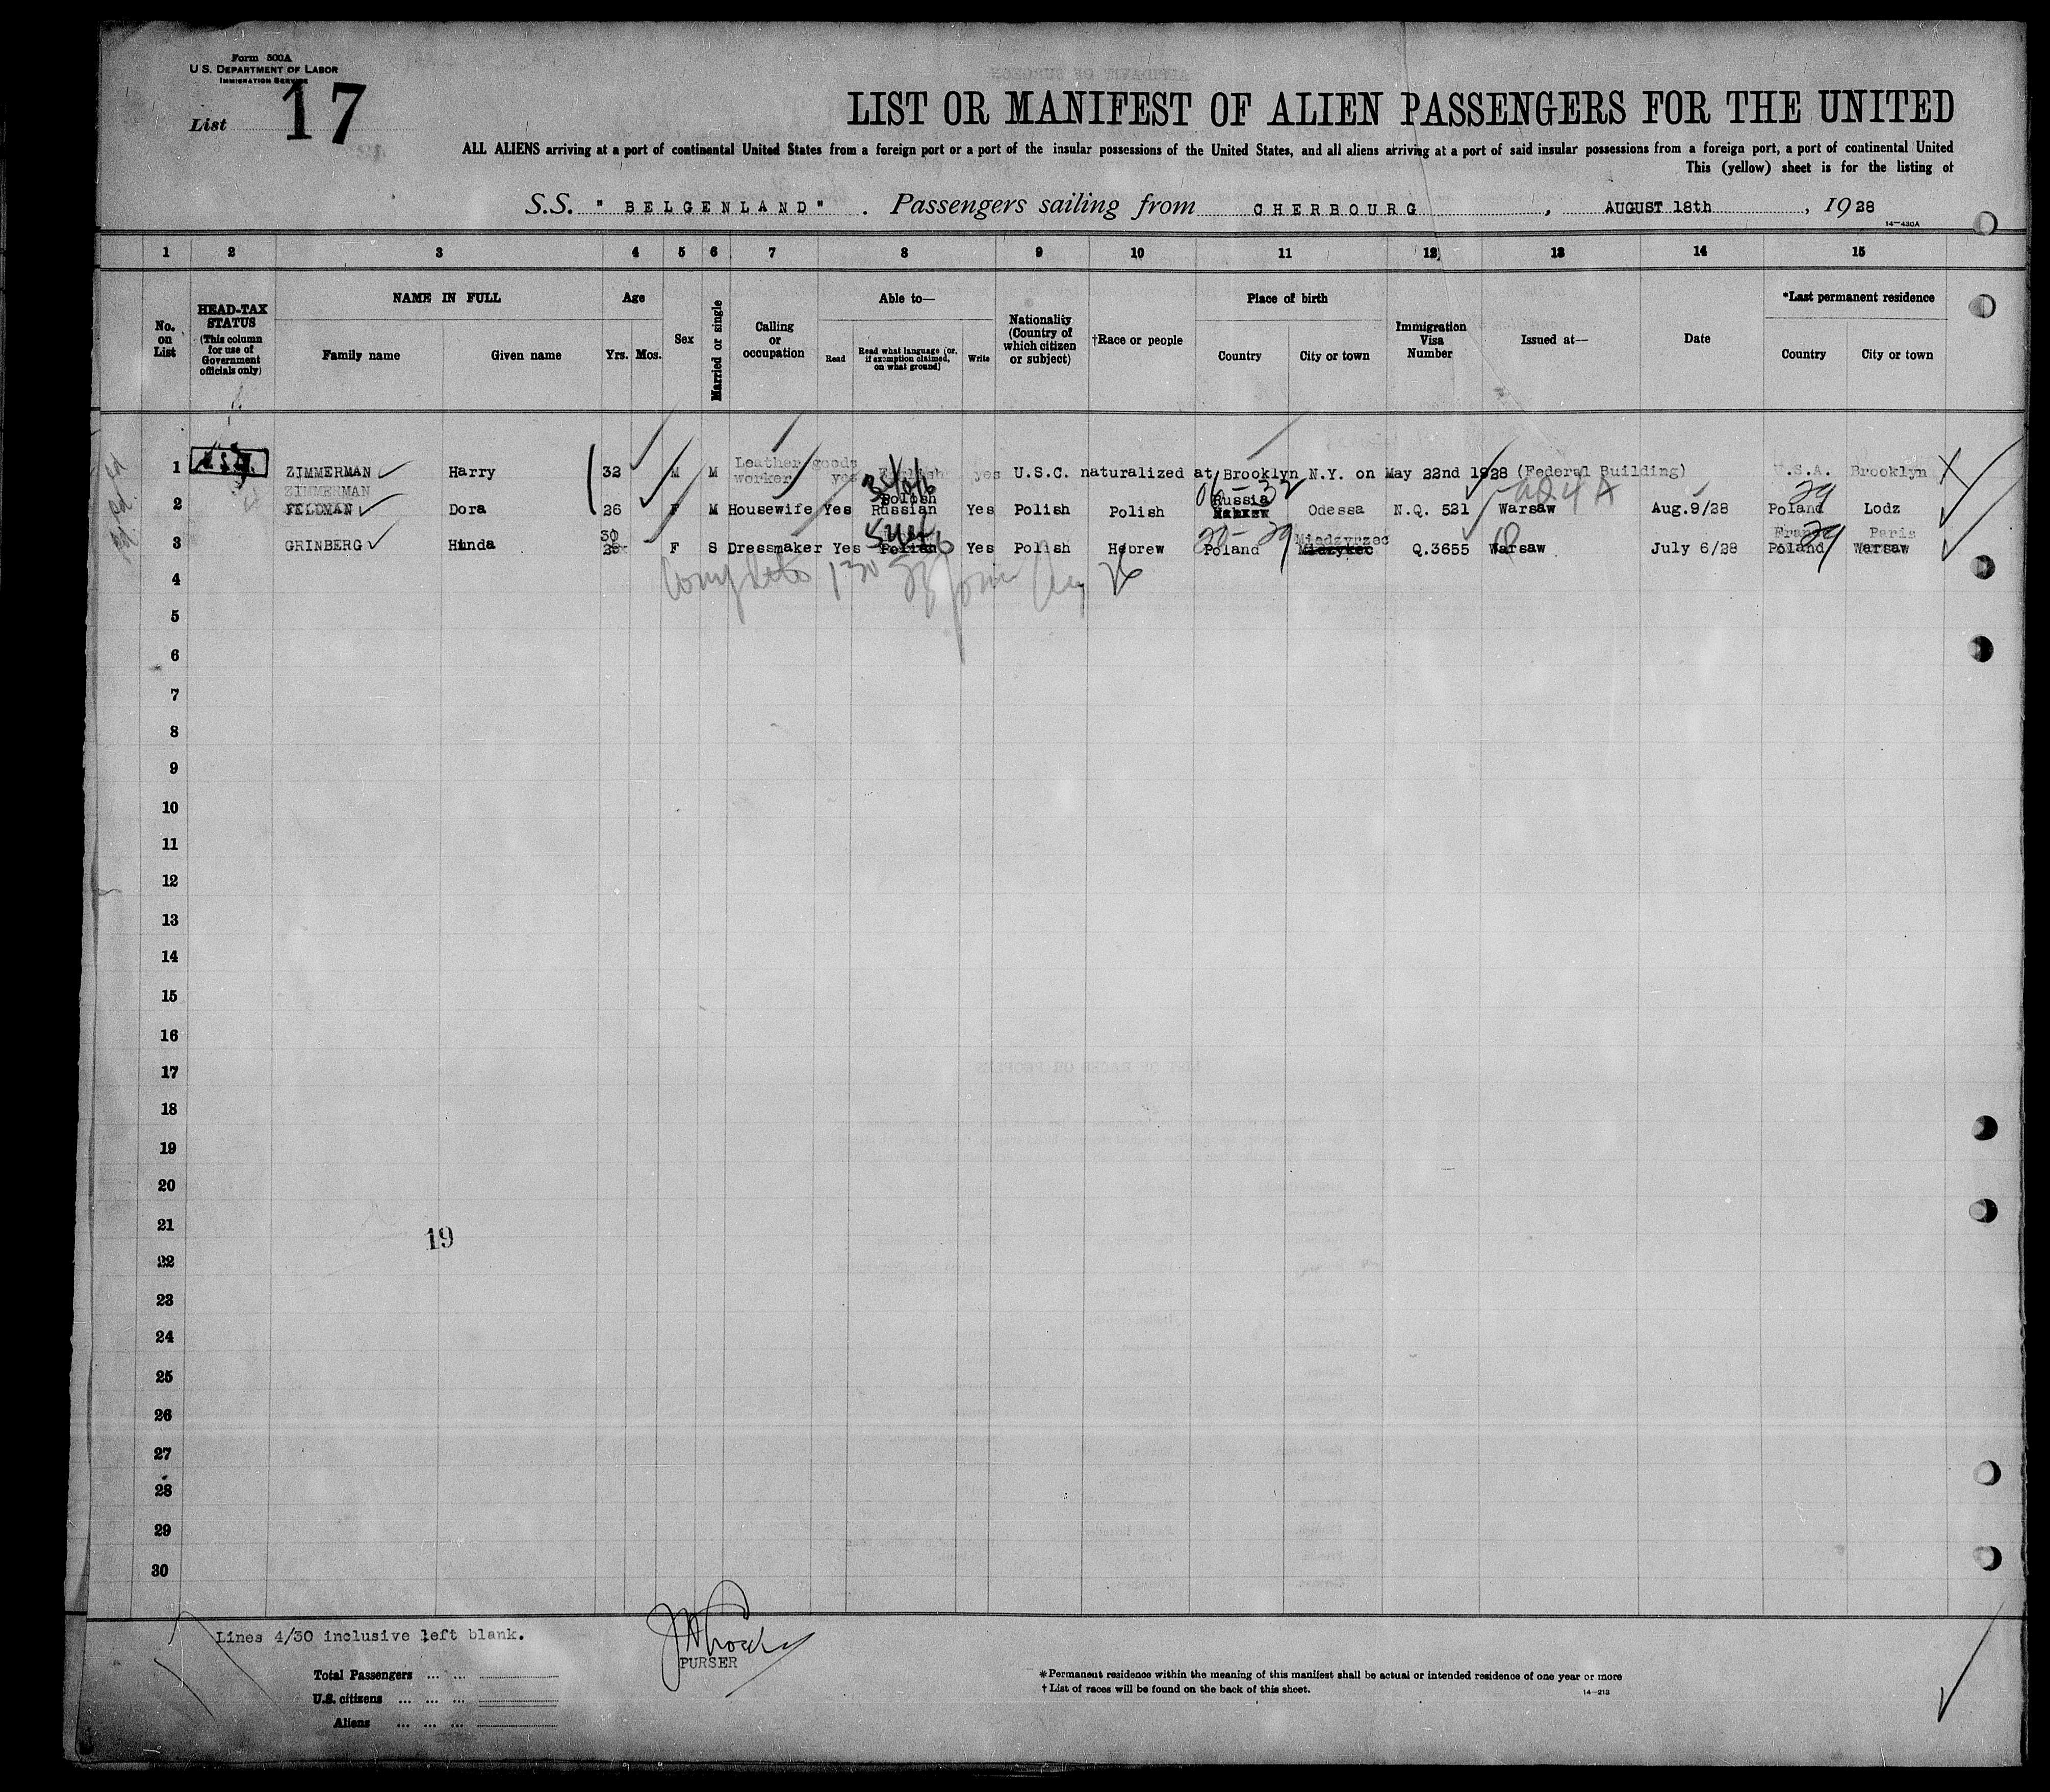 Form 500A
U.S. DEPARTMENT OF LABOR
IMMIGRATION SERVICE
List 17
LIST OR MANIFEST OF ALIEN PASSENGERS FOR THE UNITED
ALL ALIENS arriving at a port of continental United States from a foreign port or a port of the insular possessions of the United States, and all aliens arriving at a port of said insular possessions from a foreign port, a port of continental United
This (yellow) sheet is for the listing of
S.S. " BELGENLAND " . Passengers sailing from CHERBOURG , AUGUST 18th , 1928
14—430A
1 2 3 4 5 6 7 8 9 10 11 12 13 14 15
No. on List
HEAD-TAX STATUS (This column for use of Government officials only)
NAME IN FULL
Family name Given name
Age
Yrs. Mos.
Sex
Married or single
Calling or occupation
Able to—
Read Read what language (or, if exemption claimed, on what ground) Write
Nationality (Country of which citizen or subject)
†Race or people
Place of birth
Country City or town
Immigration Visa Number
Issued at—
Date
*Last permanent residence
Country City or town
1 ZIMMERMAN Harry 32 M M Leather goods worker yes English yes U.S.C. naturalized at Brooklyn N.Y. on May 22nd 1928 (Federal Building) U.S.A. Brooklyn
ZIMMERMAN
2 FELDMAN Dora 26 F M Housewife Yes Polish Russian Yes Polish Polish Russia Odessa N.Q. 521 Warsaw Aug.9/28 Poland Lodz
3 GRINBERG Hinda 30 F S Dressmaker Yes Polish Yes Polish Hebrew Poland Miadzyrzec Q.3655 Warsaw July 6/28 France Paris
Poland Warsaw
4
5
6
7
8
9
10
11
12
13
14
15
16
17
18
19
20
21
19
22
23
24
25
26
27
28
29
30
Lines 4/30 inclusive left blank.
PURSER
Total Passengers
U.S. citizens
Aliens
*Permanent residence within the meaning of this manifest shall be actual or intended residence of one year or more
† List of races will be found on the back of this sheet.
14—213